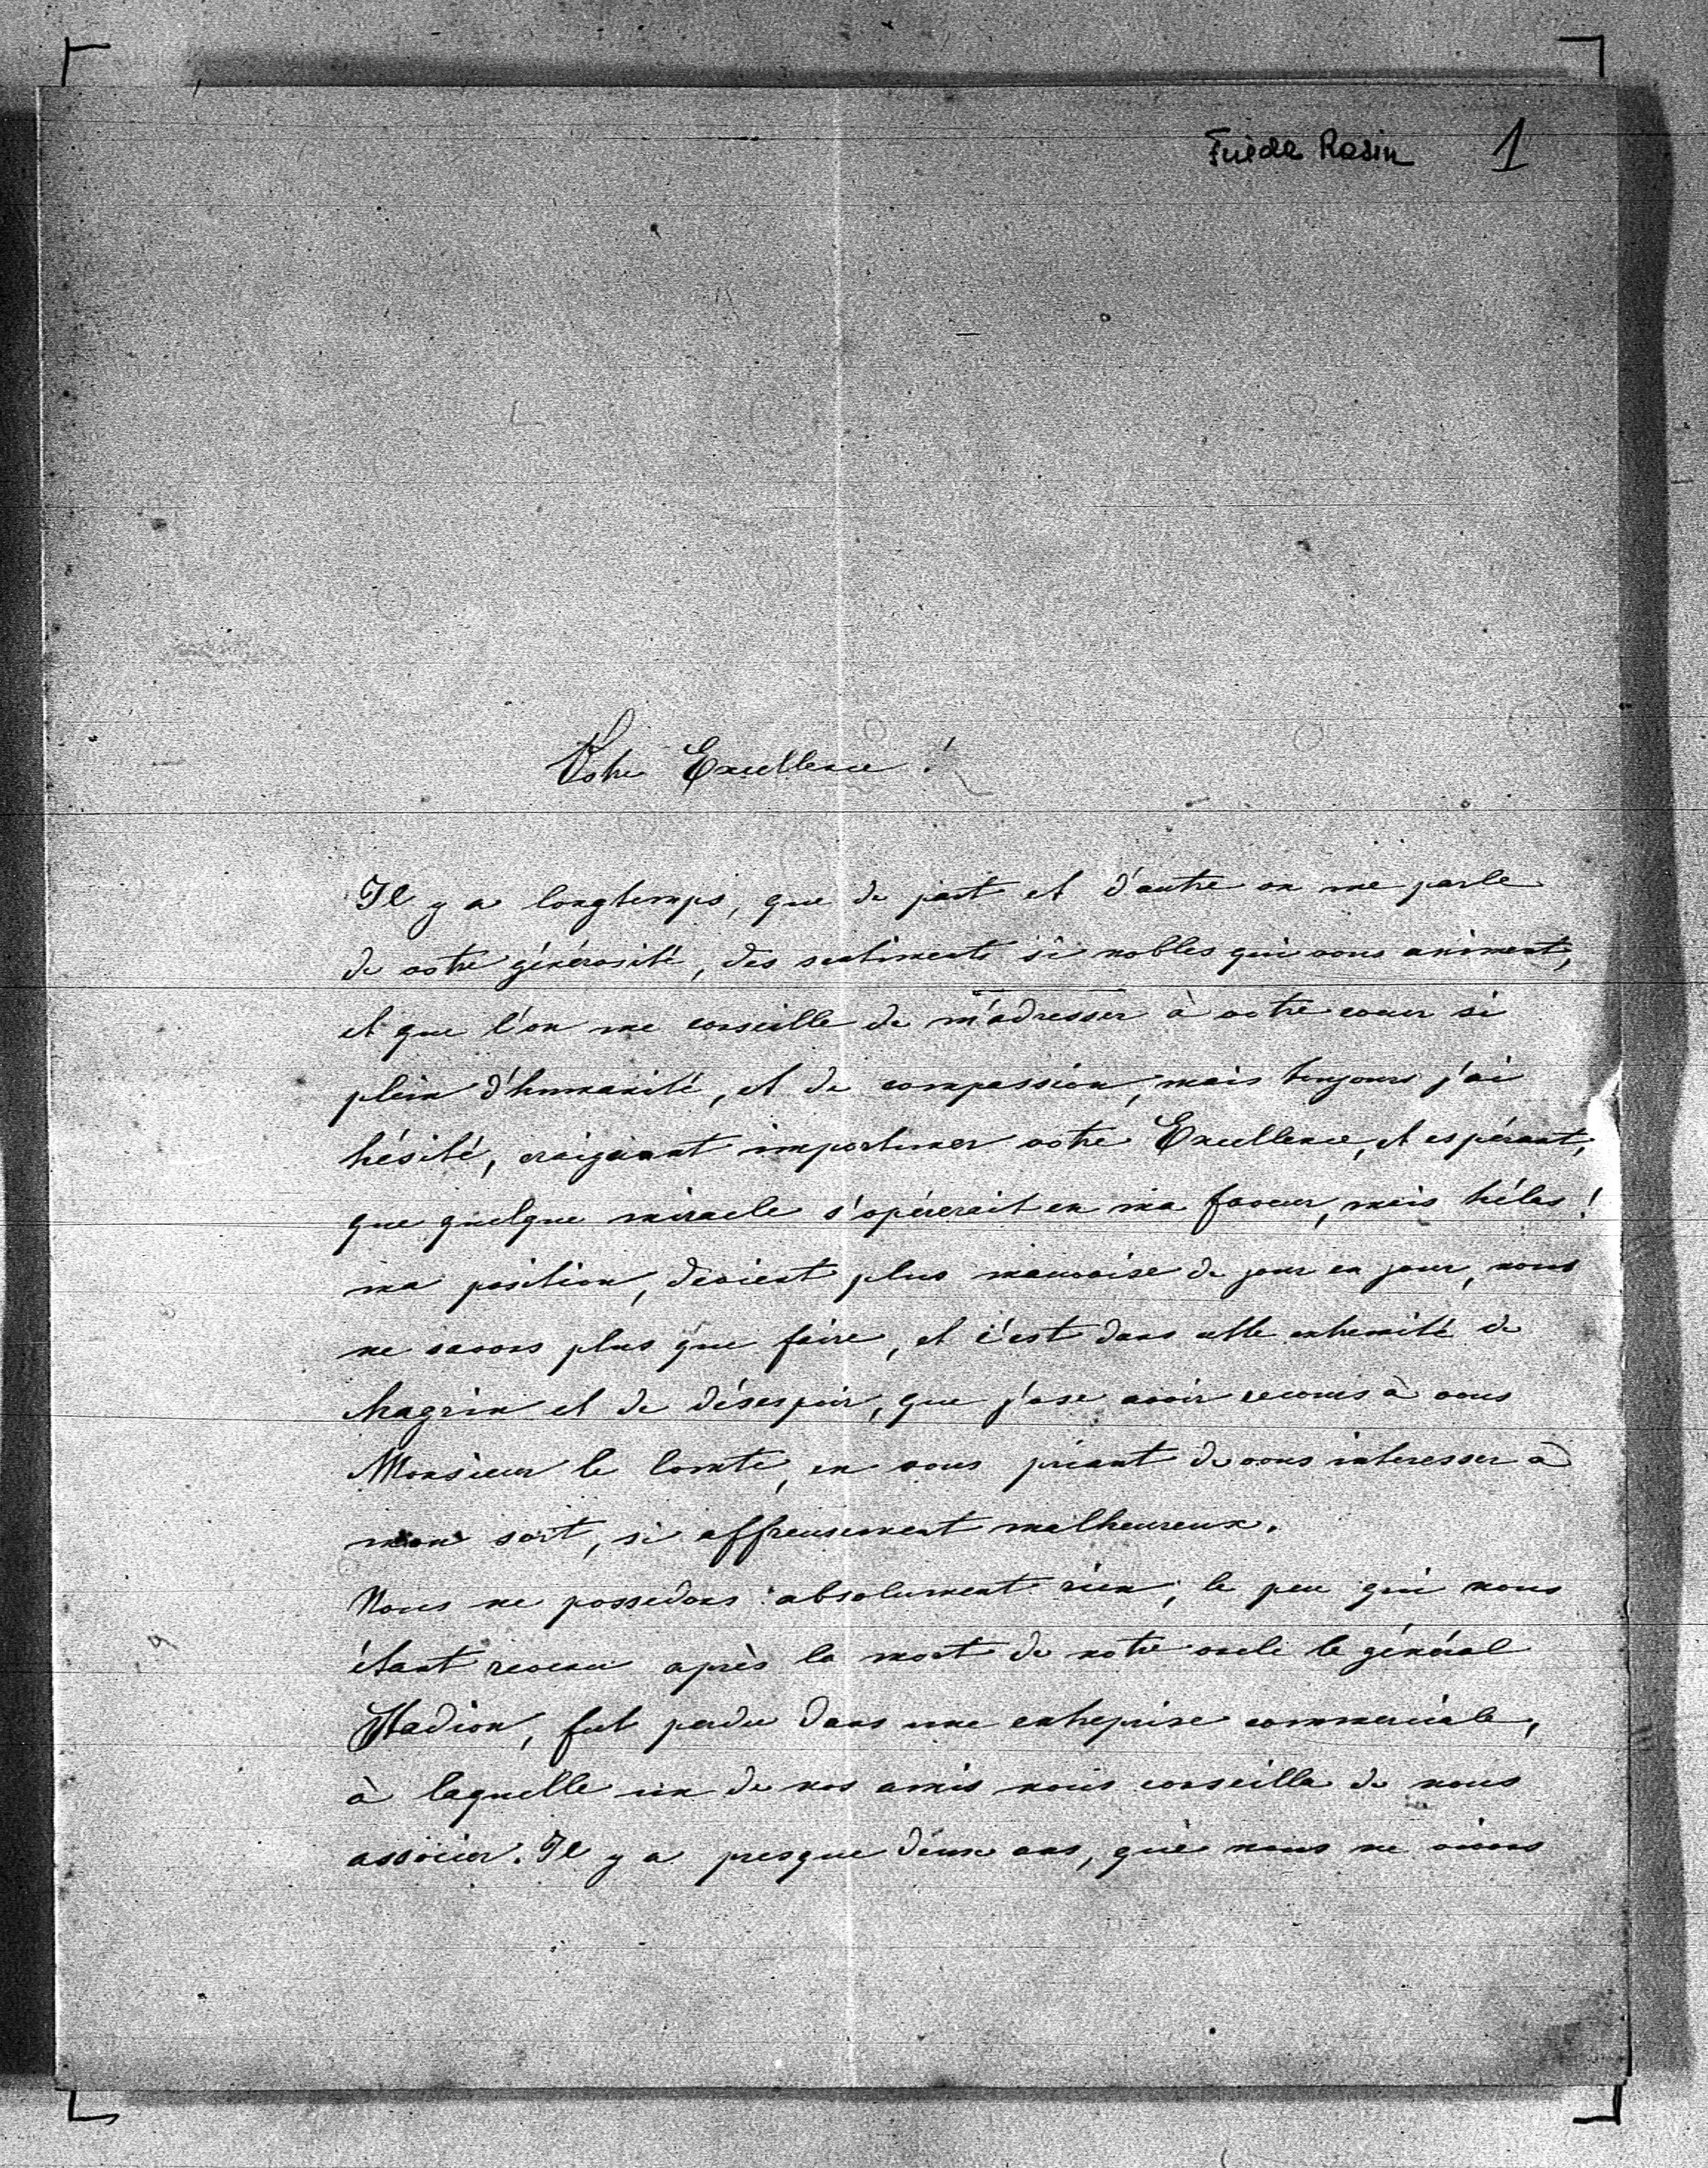 Frieda Rosin 1
Votre Excellence!
Il y a longtemps, que de part et d'autre on me parle
de votre générosité, des sentiments si nobles qui vous animent,
et que l'on me conseille de m'adresser à votre coeur si
plein d'humanité, et de compassion, mais toujours j'ai
hésité, craignant importuner votre Excellence, et espérant,
que quelque miracle s'opérerait en ma faveur, mais hélas!
ma position, devient plus mauvaise de jour en jour, nous
ne savons plus que faire, et c'est dans cette extremité de
chagrin et de désespoir, que j'ose avoir recours à vous
Monsieur le Comte, en vous priant de vous interesser à
mon sort, si affreusement malheureux.
Nous ne possedons absolument rien, le peu qui nous
étant revenu après la mort de notre oncle le général
Stadion, fut perdu dans une entreprise commerciale,
à laquelle un de nos amis nous conseilla de nous
associer. Il y a presque deux ans, que nous ne vivons